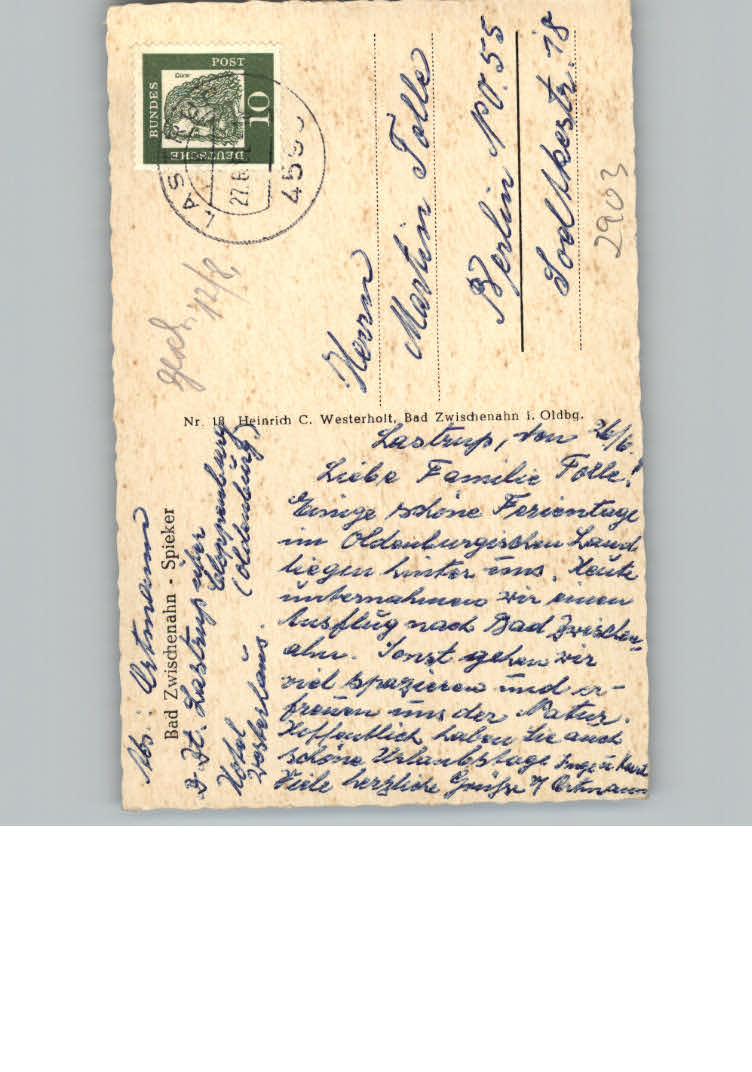 Lastrup, den 26/6.
Liebe Familie Tolle!
Einige schöne Ferientage
im Oldenburgischen Land
liegen hinter uns. Heute
unternahmen wir einen
Ausflug nach Bad Zwischen-
ahn. Sonst gehen wir
viel spazieren und er-
freuen uns der Natur.
Hoffentlich haben Sie auch
schöne Urlaubstage Inge u. Kurt
Viele herzliche Grüße Ortmann
Abs: Ortmann
Bad Zwischenahn - Spieker
z. Zt. Lastrup über
Cloppenburg
(Oldenburg)
Hotel
Nr. 18 Heinrich C. Westerholt, Bad Zwischenahn i. Oldbg.
Herrn
Martin Tolle
Berlin NO. 55
18
2903
12/8
DEUTSCHE
BUNDES
POST
Dürer
10
LAS
27.6